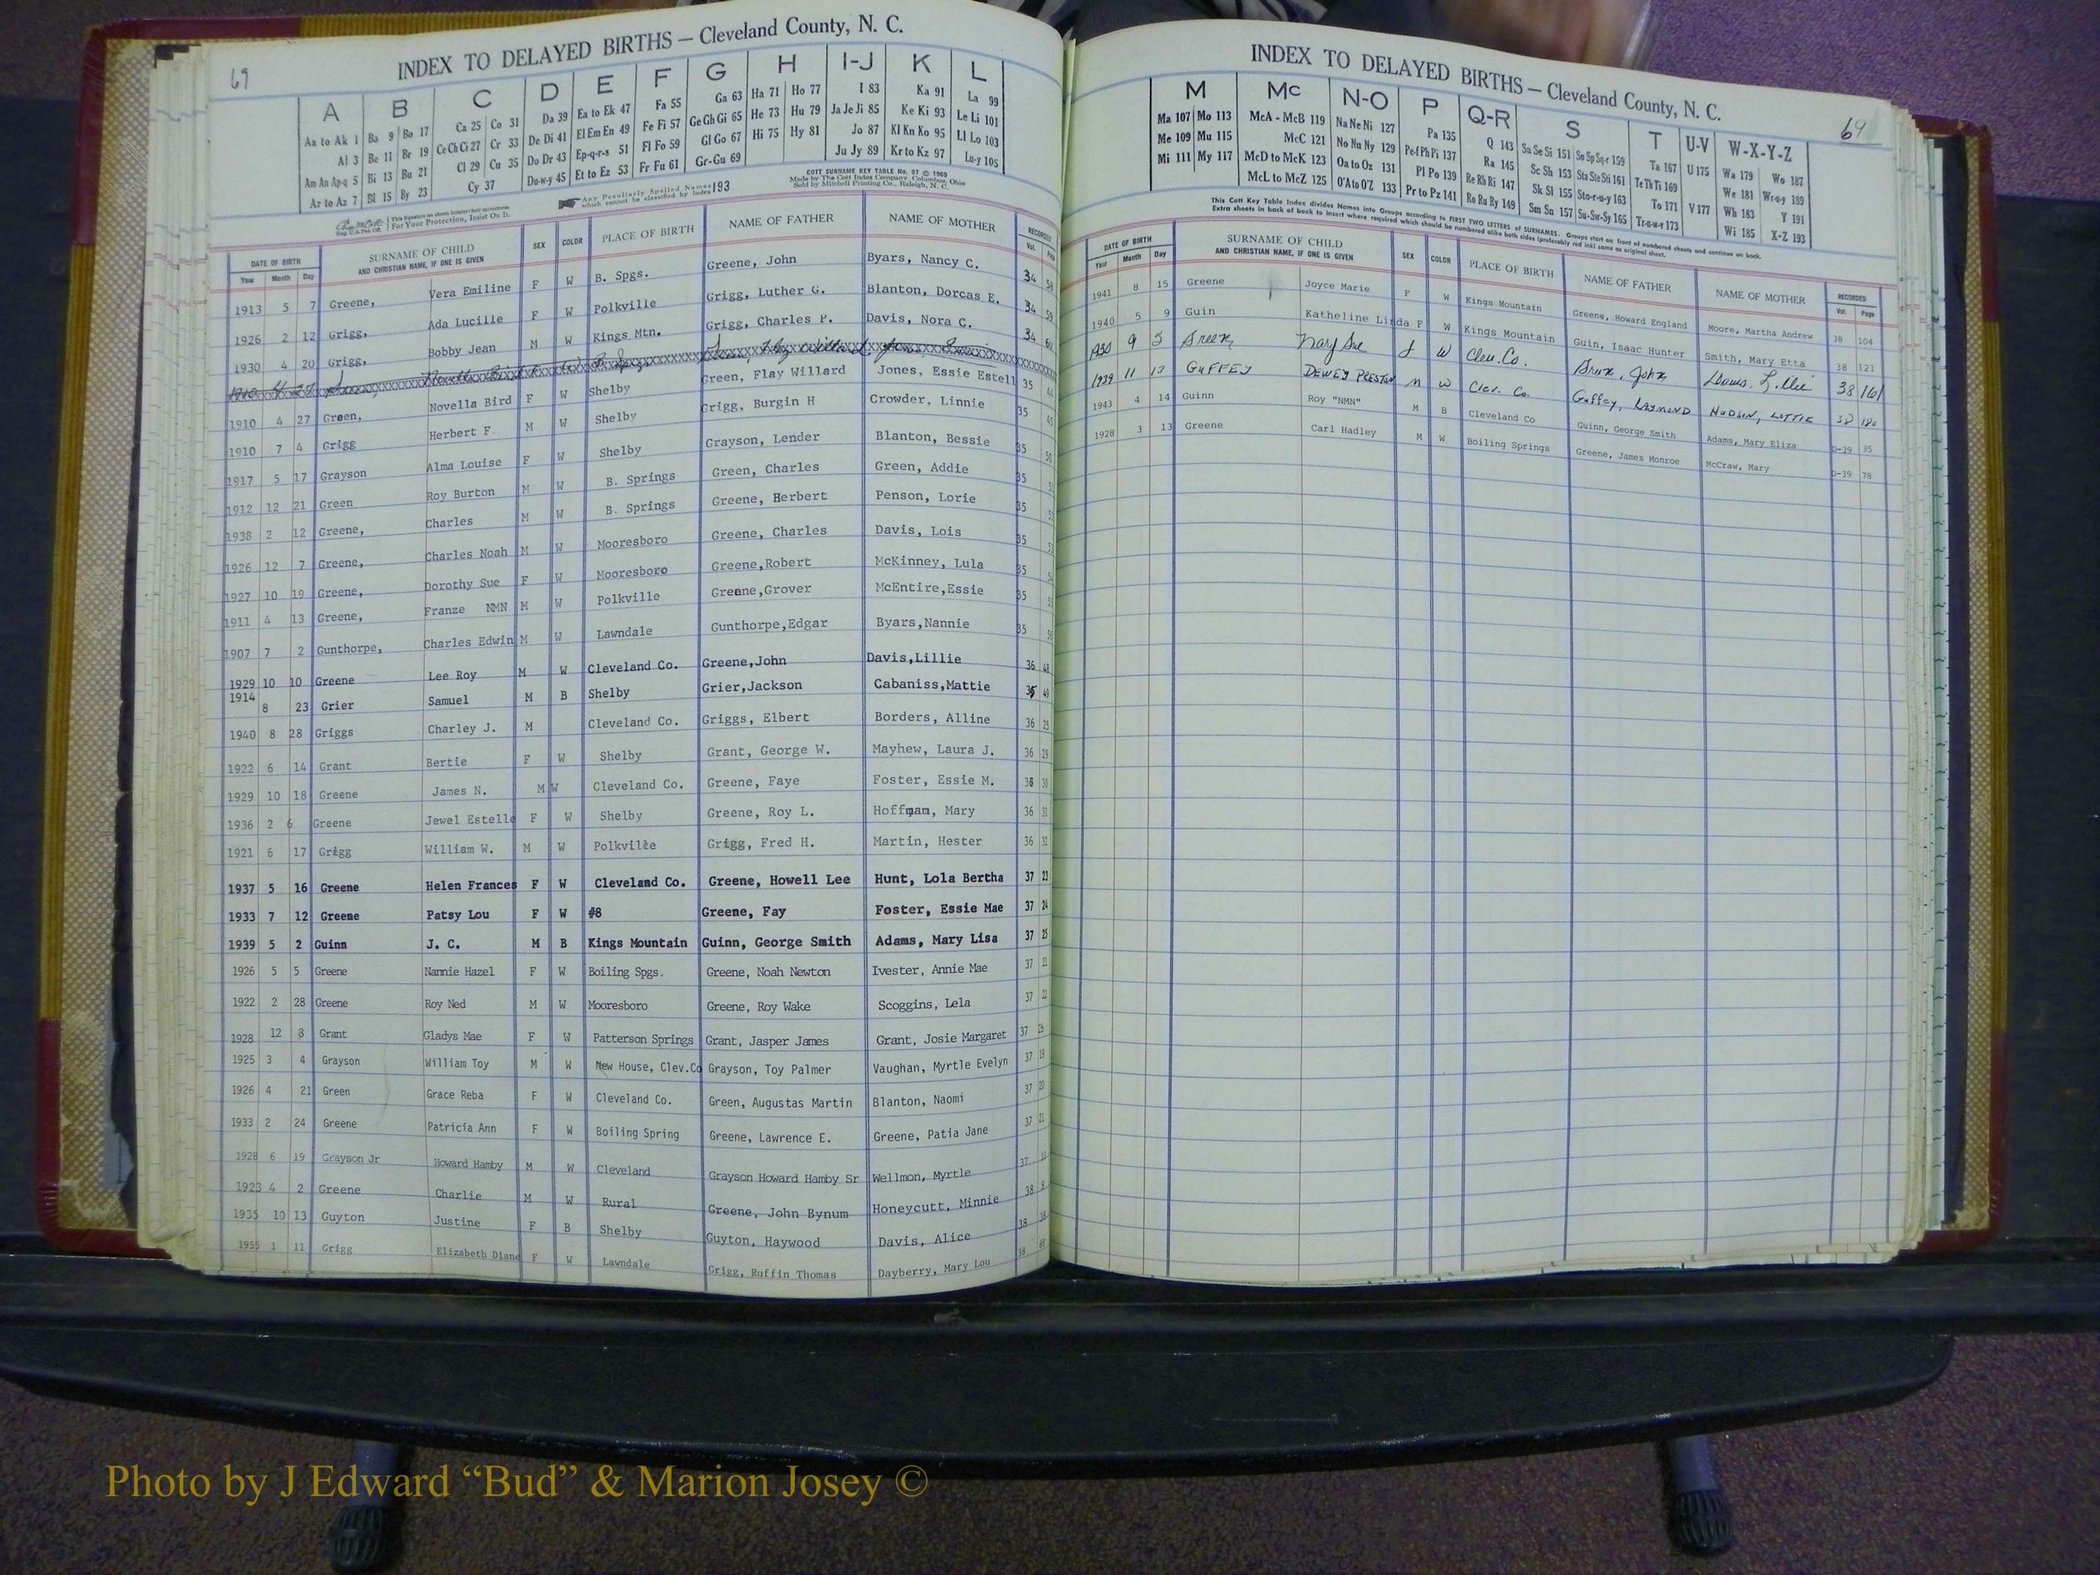 69
INDEX TO DELAYED BIRTHS — Cleveland County, N. C.
A B C D E F G H I-J K L
Aa to Ak 1 Ba 9 Bo 17 Ca 25 Co 31 Da 39 Ea to Ek 47 Fa 55 Ga 63 Ha 71 Ho 77 I 83 Ka 91 La 99
Al 3 Be 11 Br 19 Ce Ch Ci 27 Cr 33 De Di 41 El Em En 49 Fe Fi 57 Ge Gh Gi 65 He 73 Hu 79 Ja Je Ji 85 Ke Ki 93 Le Li 101
Am An Ap-q 5 Bi 13 Bu 21 Cl 29 Cu 35 Do Dr 43 Ep-q-r-s 51 Fl Fo 59 Gl Go 67 Hi 75 Hy 81 Jo 87 Kl Kn Ko 95 Ll Lo 103
Ar to Az 7 Bl 15 By 23 Cy 37 Du-w-y 45 Et to Ez 53 Fr Fu 61 Gr-Gu 69 Ju Jy 89 Kr to Kz 97 Lu-y 105
For Your Protection, Insist On It.
Any Peculiarly Spelled Names which cannot be classified by Index 193
COTT SURNAME KEY TABLE No. 97 © 1960
Made by The Cott Index Company, Columbus, Ohio
Sold by Mitchell Printing Co., Raleigh, N. C.
DATE OF BIRTH SURNAME OF CHILD AND CHRISTIAN NAME, IF ONE IS GIVEN SEX COLOR PLACE OF BIRTH NAME OF FATHER NAME OF MOTHER RECORDED
Year Month Day Vol. Page
1913 5 7 Greene, Vera Emiline F W B. Spgs. Greene, John Byars, Nancy C. 34 58
1926 2 12 Grigg, Ada Lucille F W Polkville Grigg, Luther G. Blanton, Dorcas E. 34 59
1930 4 20 Grigg, Bobby Jean M W Kings Mtn. Grigg, Charles P. Davis, Nora C. 34 60
1910 4 27 Green, Novella Bird F W Shelby Green, Flay Willard Jones, Essie Estell 35 44
1910 7 4 Grigg Herbert F. M W Shelby Grigg, Burgin H Crowder, Linnie 35
1917 5 17 Grayson Alma Louise F W Shelby Grayson, Lender Blanton, Bessie 35 50
1912 12 21 Green Roy Burton M W B. Springs Green, Charles Green, Addie 35
1938 2 12 Greene, Charles M W B. Springs Greene, Herbert Penson, Lorie 35
1926 12 7 Greene, Charles Noah M W Mooresboro Greene, Charles Davis, Lois 35
1927 10 19 Greene, Dorothy Sue F W Mooresboro Greene,Robert McKinney, Lula 35
1911 4 13 Greene, Franze NMN M W Polkville Greene,Grover McEntire,Essie 35
1907 7 2 Gunthorpe, Charles Edwin M W Lawndale Gunthorpe,Edgar Byars,Nannie 35
1929 10 10 Greene Lee Roy M W Cleveland Co. Greene,John Davis,Lillie 36 48
1914 8 23 Grier Samuel M B Shelby Grier,Jackson Cabaniss,Mattie 36 49
1940 8 28 Griggs Charley J. M Cleveland Co. Griggs, Elbert Borders, Alline 36 25
1922 6 14 Grant Bertie F W Shelby Grant, George W. Mayhew, Laura J. 36 29
1929 10 18 Greene James N. M W Cleveland Co. Greene, Faye Foster, Essie M. 36 30
1936 2 6 Greene Jewel Estelle F W Shelby Greene, Roy L. Hoffman, Mary 36 31
1921 6 17 Grigg William W. M W Polkville Grigg, Fred H. Martin, Hester 36 32
1937 5 16 Greene Helen Frances F W Cleveland Co. Greene, Howell Lee Hunt, Lola Bertha 37 23
1933 7 12 Greene Patsy Lou F W #8 Greene, Fay Foster, Essie Mae 37 24
1939 5 2 Guinn J. C. M B Kings Mountain Guinn, George Smith Adams, Mary Lisa 37 25
1926 5 5 Greene Nannie Hazel F W Boiling Spgs. Greene, Noah Newton Ivester, Annie Mae 37
1922 2 28 Greene Roy Ned M W Mooresboro Greene, Roy Wake Scoggins, Lela 37
1928 12 3 Grant Gladys Mae F W Patterson Springs Grant, Jasper James Grant, Josie Margaret 37 26
1925 3 4 Grayson William Toy M W New House, Clev.Co Grayson, Toy Palmer Vaughan, Myrtle Evelyn 37 19
1926 4 21 Green Grace Reba F W Cleveland Co. Green, Augustas Martin Blanton, Naomi 37 20
1933 2 24 Greene Patricia Ann F W Boiling Spring Greene, Lawrence E. Greene, Patia Jane 37 21
1928 6 19 Grayson Jr Howard Hamby M W Cleveland Grayson Howard Hamby Sr Wellmon, Myrtle 37
1923 4 2 Greene Charlie M W Rural Greene, John Bynum Honeycutt, Minnie 38 8
1935 10 13 Guyton Justine F B Shelby Guyton, Haywood Davis, Alice 38
1955 1 11 Grigg Elizabeth Diane F W Lawndale Grigg, Ruffin Thomas Dayberry, Mary Lou 38
INDEX TO DELAYED BIRTHS — Cleveland County, N. C.
69
M Mc N-O P Q-R S T U-V W-X-Y-Z
Ma 107 Mo 113 McA - McB 119 Na Ne Ni 127 Pa 135 Q 143 Sa Se Si 151 So Sp Sq-r 159 Ta 167 U 175 Wa 179 Wo 187
Me 109 Mu 115 McC 121 No Nu Ny 129 Pe-f Ph Pi 137 Ra 145 Sc Sh 153 Sta Ste Sti 161 Te Th Ti 169 We 181 Wr-u-y 189
Mi 111 My 117 McD to McK 123 Oa to Oz 131 Pl Po 139 Re Rh Ri 147 Sk Sl 155 Sto-r-u-y 163 To 171 V 177 Wh 183 Y 191
McL to McZ 125 O'A to O'Z 133 Pr to Pz 141 Ro Ru Ry 149 Sm Sn 157 Su-Sw-Sy 165 Tr-u-w-y 173 Wi 185 X-Z 193
This Cott Key Table Index divides Names into Groups according to FIRST TWO LETTERS of SURNAMES. Groups start on front of numbered sheets and continue on back.
Extra sheets in back of book to insert where required which should be numbered alike both sides (preferably red ink) same as original sheet.
DATE OF BIRTH SURNAME OF CHILD AND CHRISTIAN NAME, IF ONE IS GIVEN SEX COLOR PLACE OF BIRTH NAME OF FATHER NAME OF MOTHER RECORDED
Year Month Day Vol. Page
1941 8 15 Greene Joyce Marie F W Kings Mountain Greene, Howard England Moore, Martha Andrew 38 104
1940 5 9 Guin Katheline Linda F W Kings Mountain Guin, Isaac Hunter Smith, Mary Etta 38 121
1930 9 5 Green Mary Sue F W Clev. Co. Green, John Davis, Lillie 38 161
1939 11 13 GUFFEY DEWEY PRESTON M W Clev. Co. Guffey, RAYMOND HUDSON, LOTTIE 38 180
1943 4 14 Guinn Roy "NMN" M B Cleveland Co Guinn, George Smith Adams, Mary Eliza D-39 35
1928 3 13 Greene Carl Hadley M W Boiling Springs Greene, James Monroe McCraw, Mary D-39 78
Photo by J Edward “Bud” & Marion Josey ©